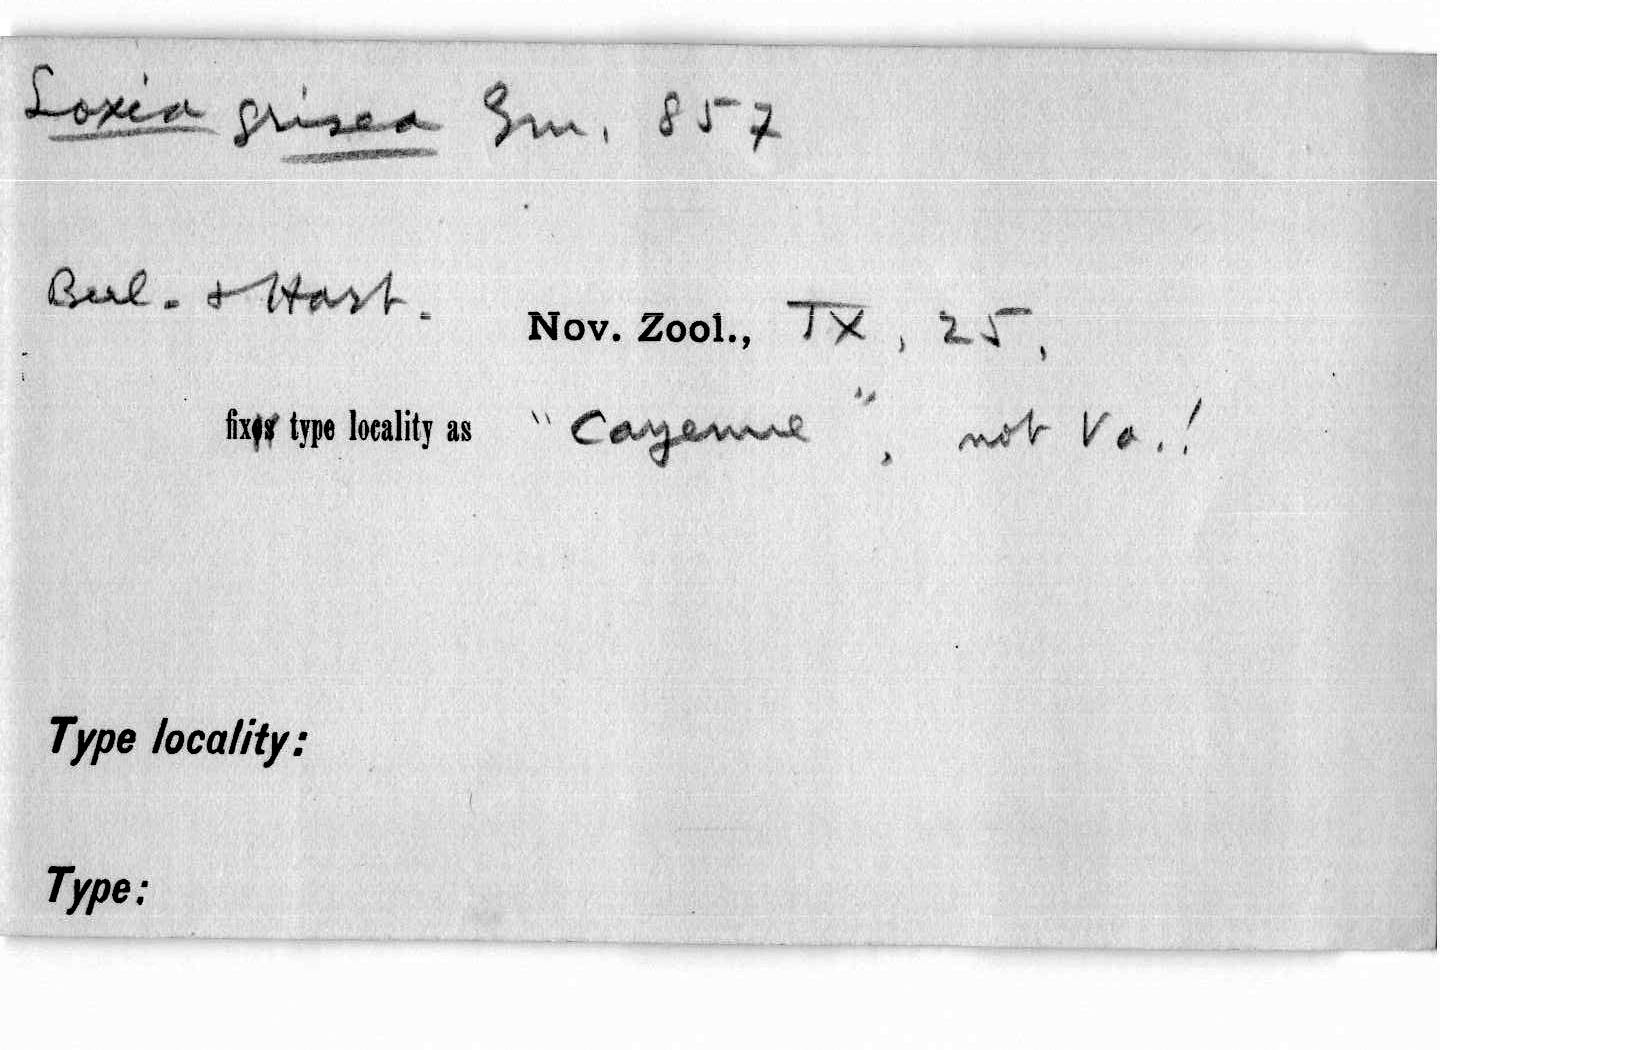 Loxia grisea Gm. 857
Berl. & Hart.
Nov. Zool., IX, 25,
fix type locality as "Cayenne", not Va.!
Type locality:
Type: